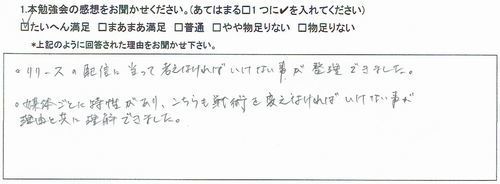 1.本勉強会の感想をお聞かせください。(あてはまる□1つに✔を入れてください)
☑たいへん満足 □まあまあ満足 □普通 □やや物足りない □物足りない
*上記のように回答された理由をお聞かせ下さい。
・リリースの配信に当って考えなければいけない事が整理できました。
・媒体ごとに特性があり、こちらも戦術を変えなければいけない事が
理由と共に理解できました。